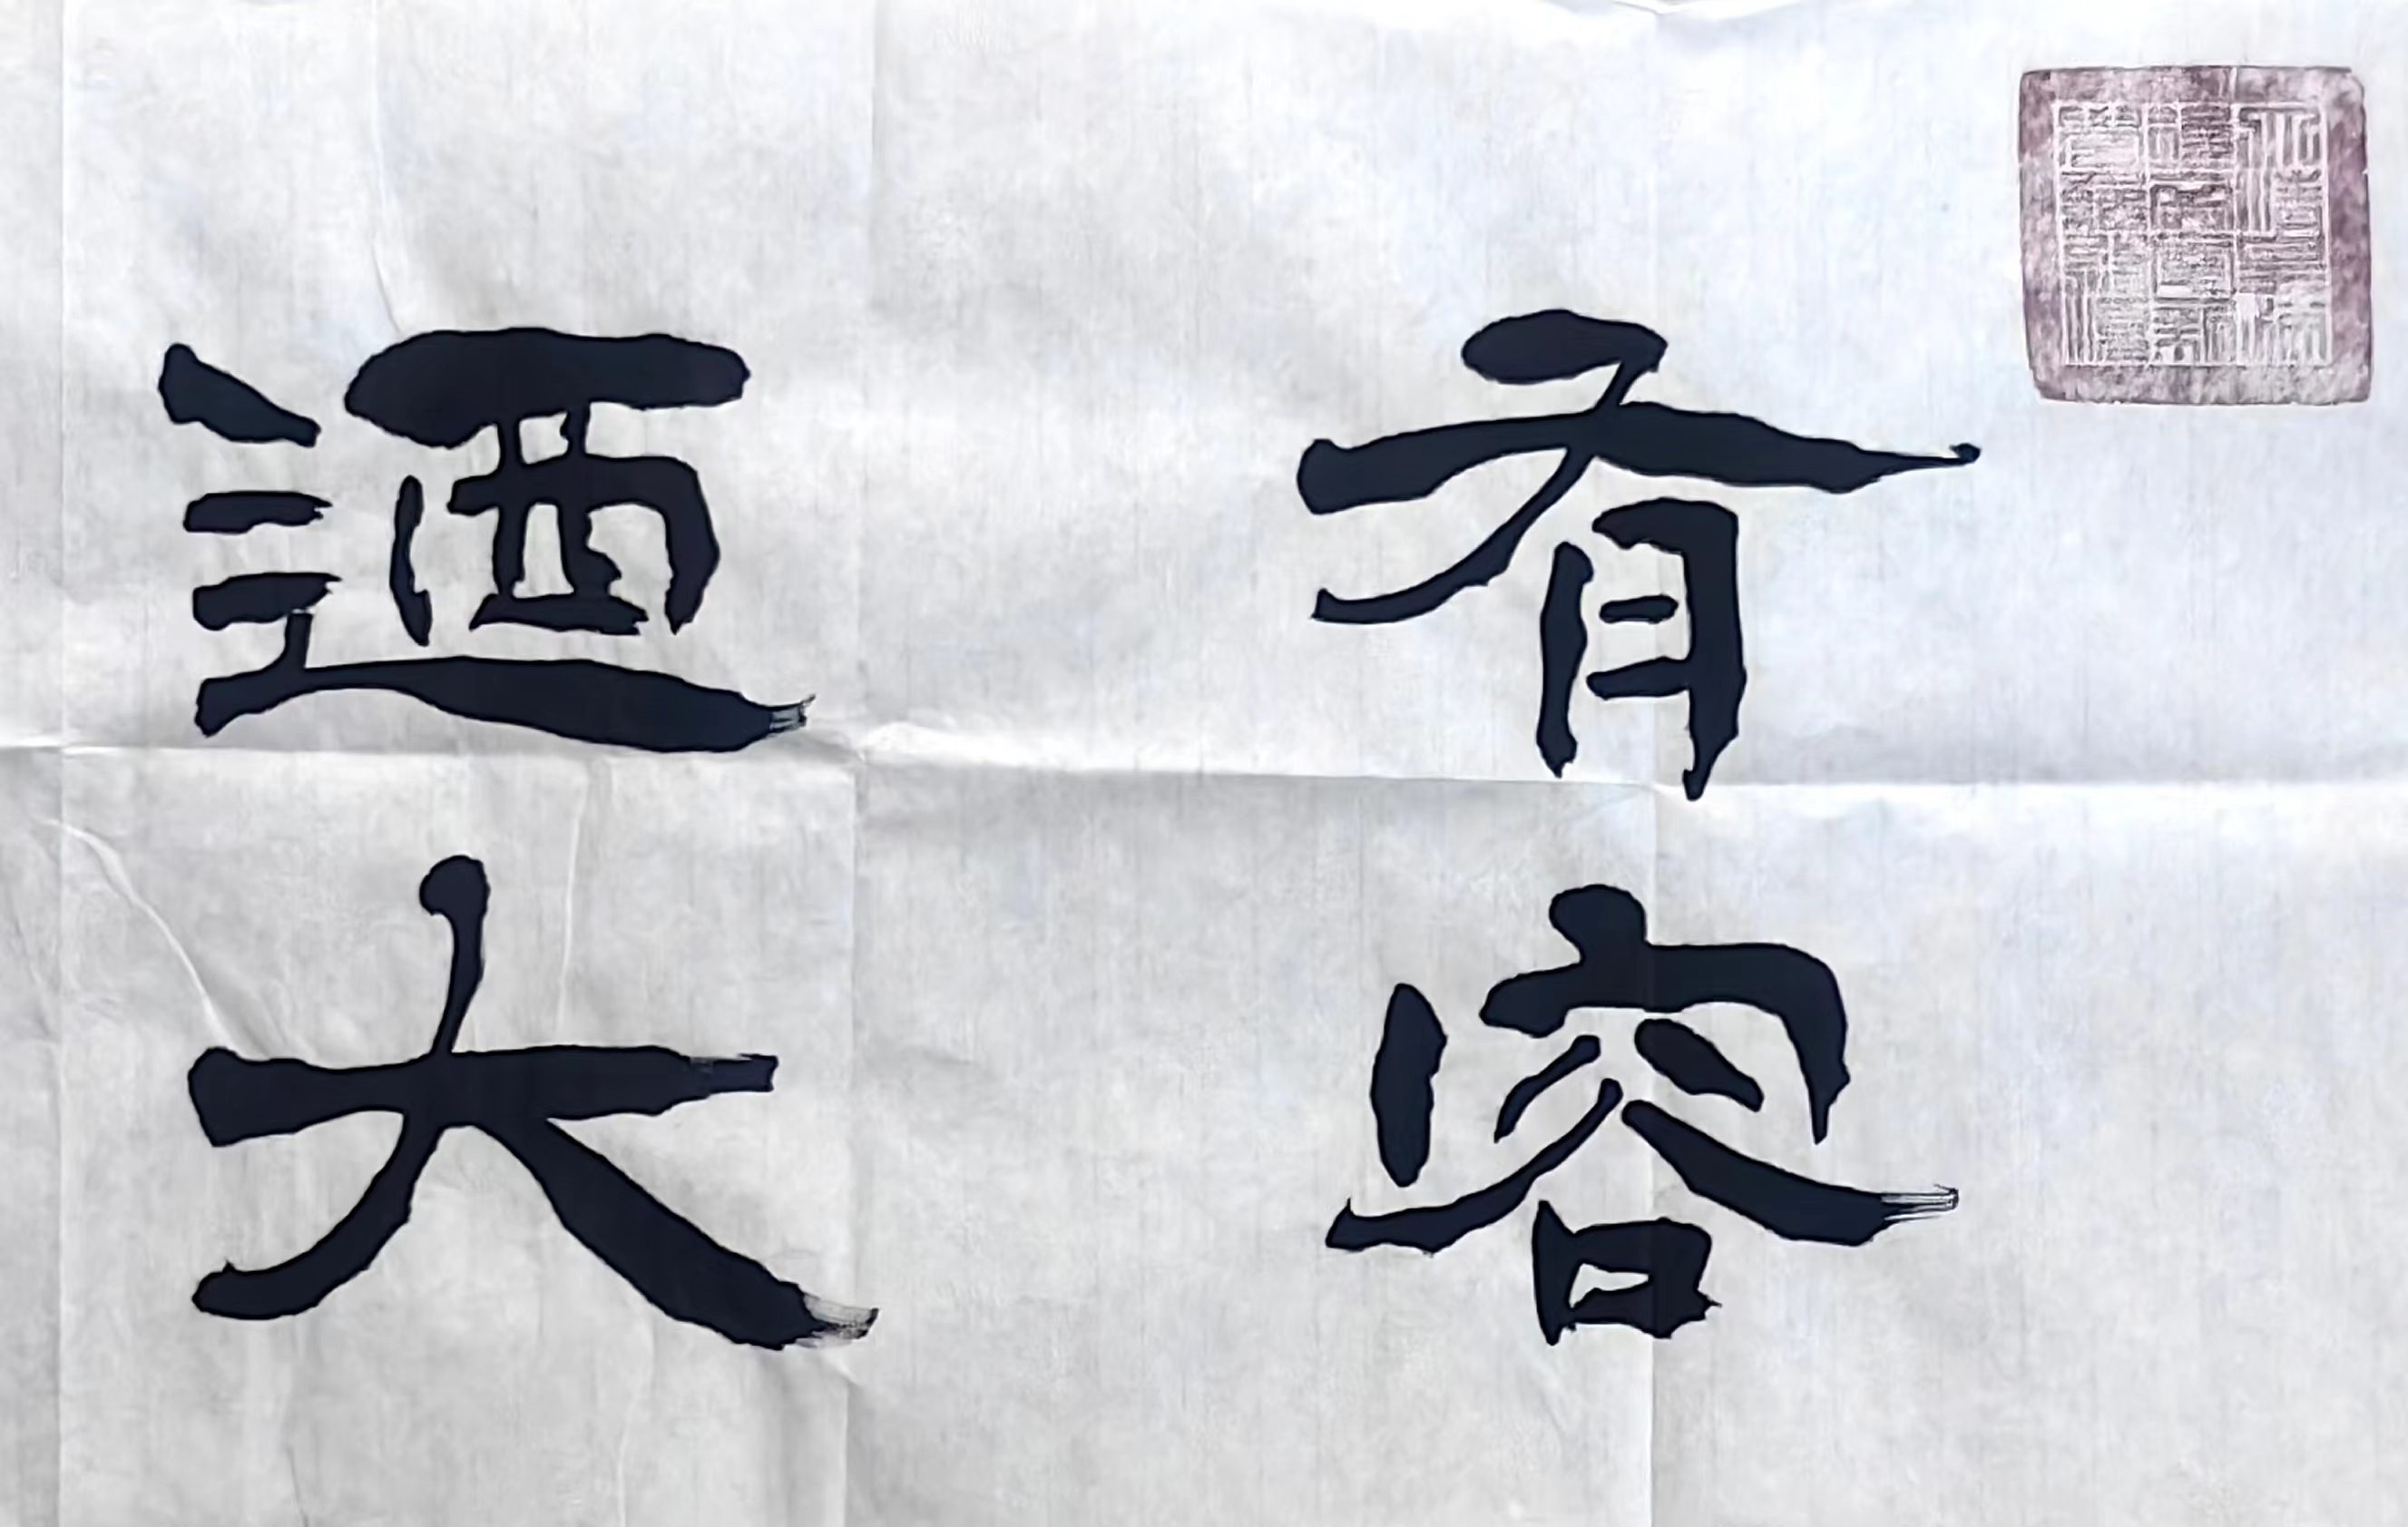 有容
迺大